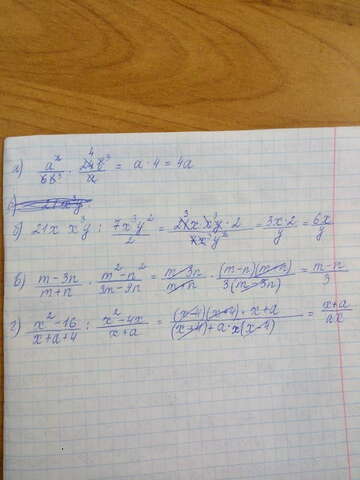 а) a²/6b³ · 24b³/a = a · 4 = 4a
б) 21x x³y : 7x³y²/2 = 21x x³y · 2/7x³y² = 3x·2/y = 6x/y
в) m-3n/m+n · m²-n²/3m-9n = m-3n/m+n · (m-n)(m+n)/3(m-3n) = m-n/3
г) x²-16/x+a+4 : x²-4x/x+a = (x-4)(x+4) · x+a/(x+4)+a·x(x-4) = x+a/ax